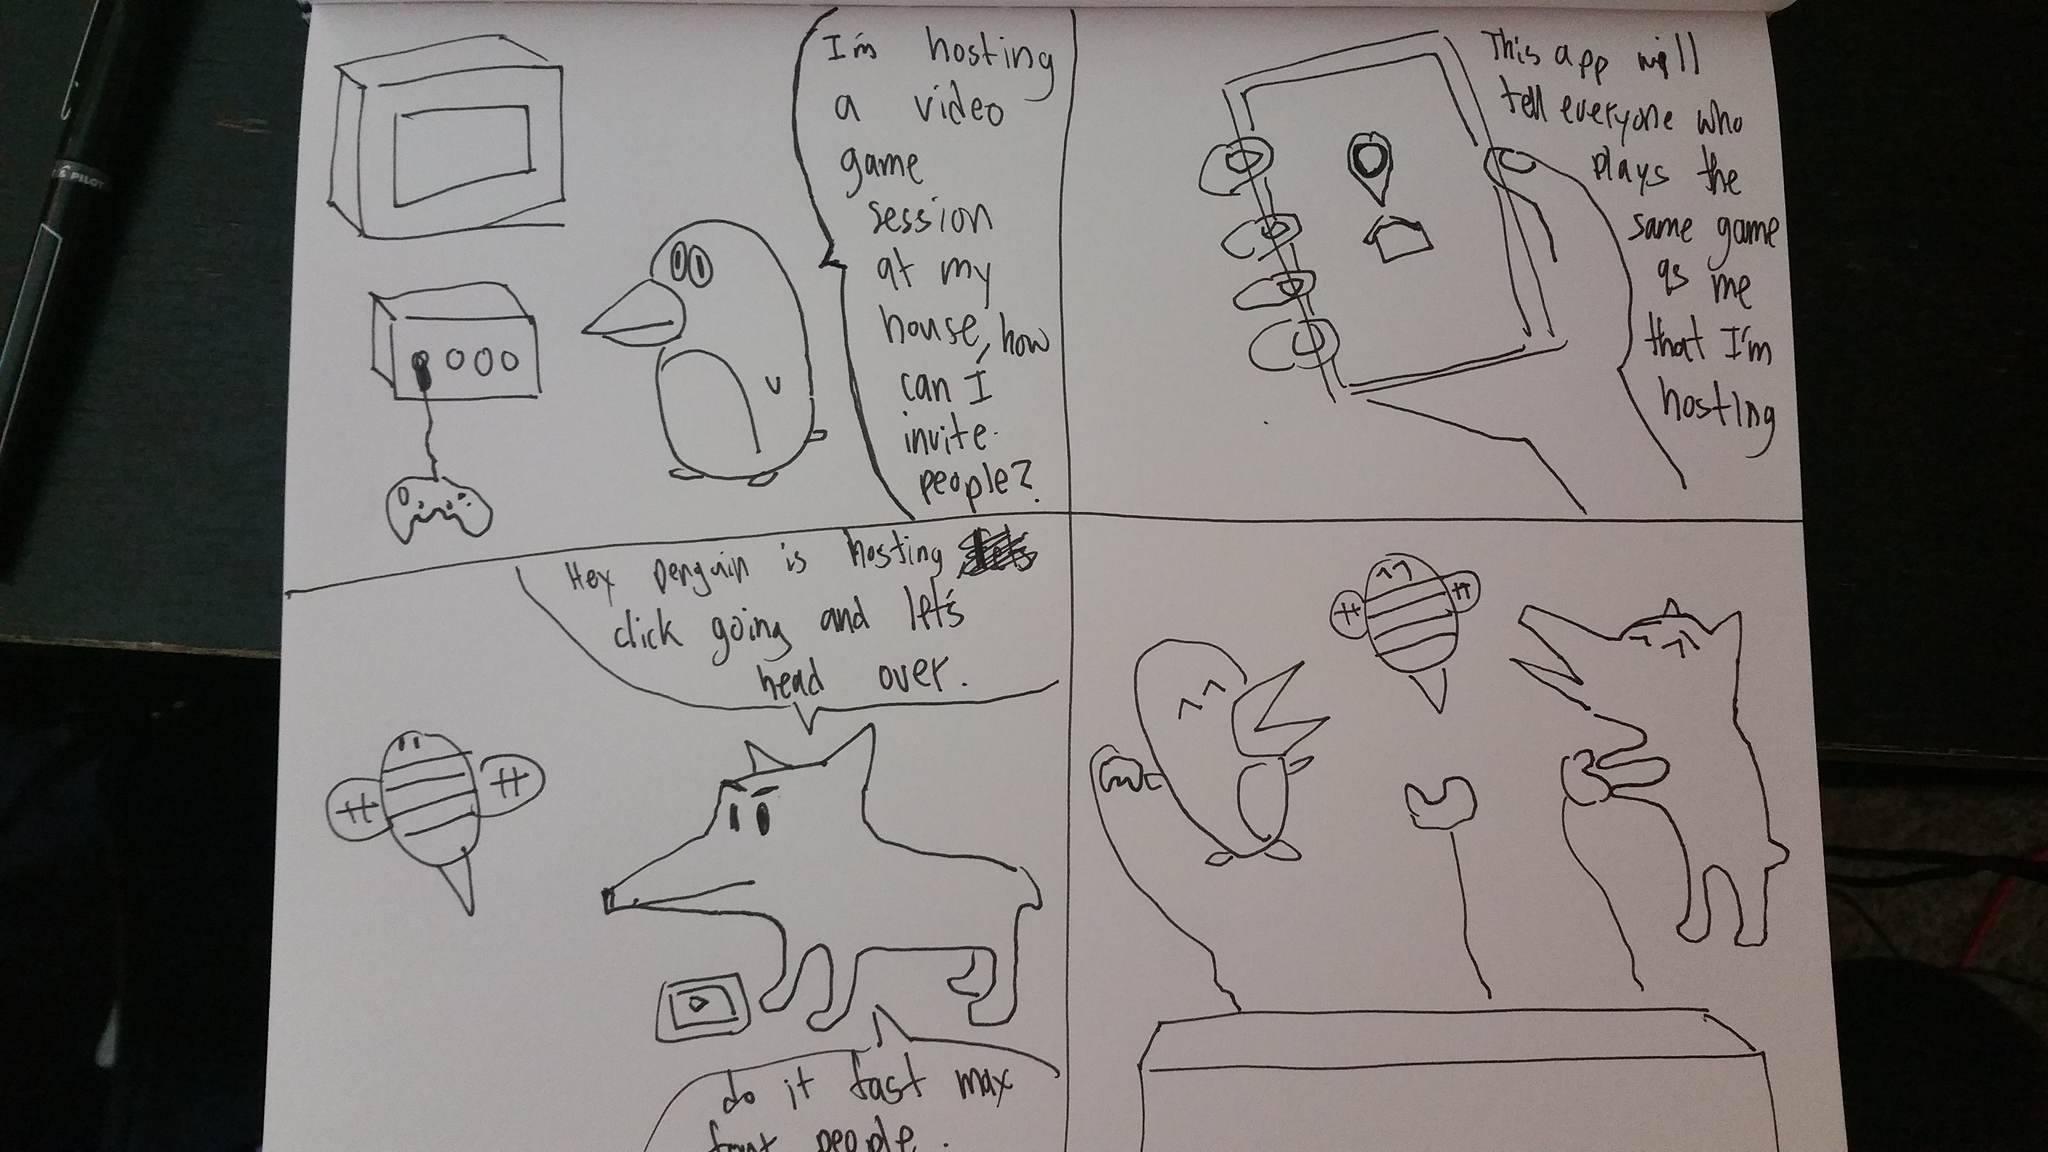 I'm hosting
a video
game
session
at my
house, how
can I
invite
people?
This app will
tell everyone who
plays the
same game
as me
that I'm
hosting
Hey penguin is hosting
click going and let's
head over.
do it fast max
people.
PILOT